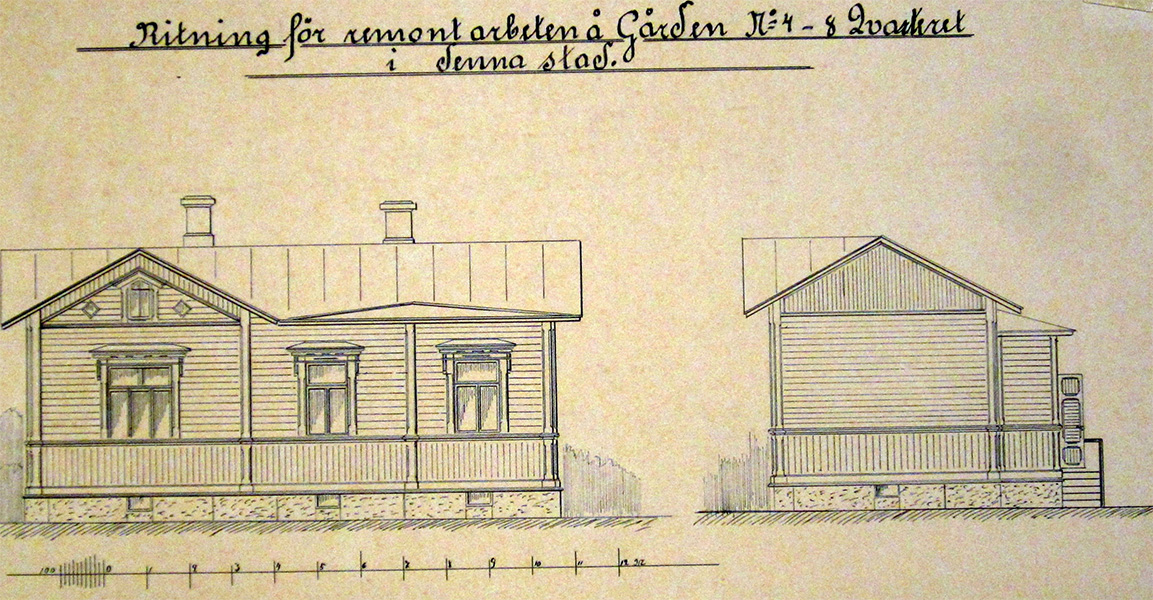 Ritning för remont arbeten å Gården No 4 - 8 Qvarteret
i denna stad.
100 0 1 2 3 4 5 6 7 8 9 10 11 12